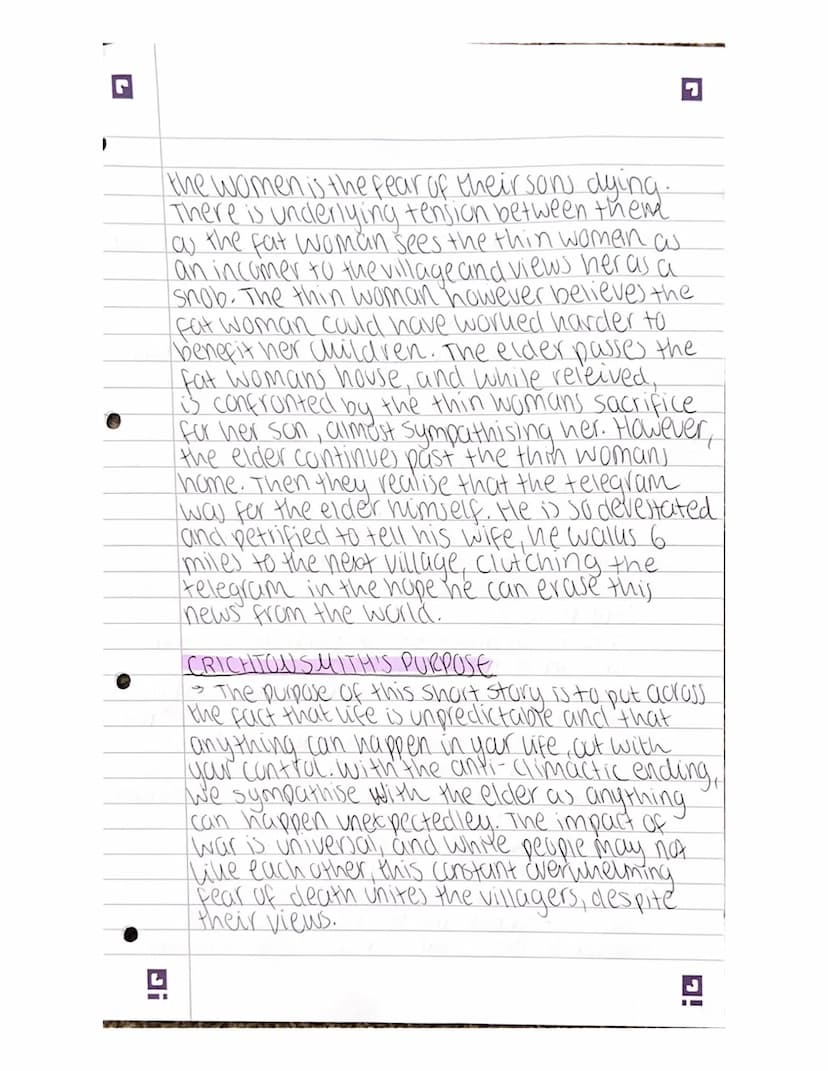 the women is the fear of their sons dying.
There is underlying tension between them
as the fat woman sees the thin women as
an incomer to the village and views her as a
snob. The thin woman however believes the
fat woman could have worked harder to
benefit her children. The elder passes the
fat womans house, and while releived,
is confronted by the thin womans sacrifice
for her son, almost sympathising her. However,
the elder continues past the thin womans
home. Then they realise that the telegram
was for the elder himself. He is so devestated
and petrified to tell his wife, he walks 6
miles to the next village, clutching the
telegram in the hope he can erase this
news from the world.
CRICHTON SMITH'S PURPOSE
→ The purpose of this short story is to put across
the fact that life is unpredictable and that
anything can happen in your life, out with
your control. With the anti-climactic ending,
we sympathise with the elder as anything
can happen unexpectedley. The impact of
war is universal, and while people may not
like each other, this constant overwhelming
fear of death unites the villagers, despite
their views.